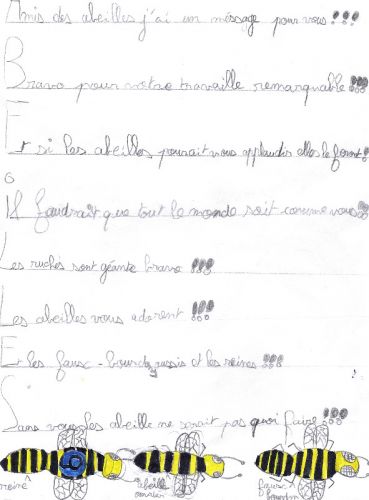 Amis des abeilles j'ai un méssage pour vous !!!
Bravo pour votre travaille remarquable !!!
Et si les abeilles pourait vous applaudir elles le feront !
Il faudrait que tout le monde soit comme vous !!
Les ruches sont géante bravo !!!
Les abeilles vous adorent !!!
Et les faux-bourdons aussi et les reines !!!
Sans vous les abeille ne serait pas quoi faire !!!
reine abeille ouvrière faux bourdon